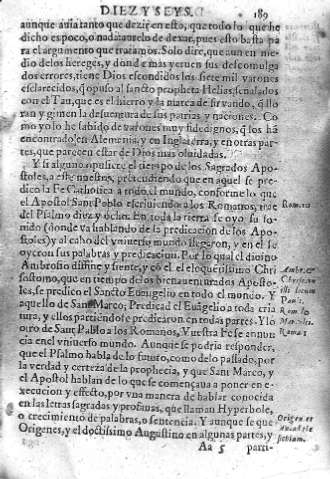 DIEZ Y SEYS.
189
aunque auia tanto que dezir en esto, que todo lo que he
dicho es poco, o nada
para el argumento que tratamos. Solo dire, que aun en me
dio de los hereges, y donde mas yeruen sus descomulga
dos errores, tiene Dios escondidos los siete mil varones
esclarecidos, q̃ opuso al sancto propheta Helias, señalados
con el Tau, que es el hierro y la marca de
ran y gimen la desuentura de sus patrias y naciones. Co
mo yo lo he sabido de varones muy fidedignos, q̃ los hã
encontrado en Alemania, y en Inglaterra, y en otras par-
tes, que parecen estar de Dios mas oluidadas.
Y si alguno opusiere el tiempo de los Sagrados Apo
stoles, a este nuestros, pretendiendo que en aquel se pre
dico la Fe Catholica a todo el mundo, conforme a lo que
el Apostol Sant Pablo escriuiendo a los Romanos,
del Psalmo diez y ocho. En toda la tierra se oyo su so
nido (donde va hablando de la predicacion de los Apo
stoles) y al cabo del vniuerso mundo llegaron, y en el se
oyeron sus palabras y predicacion. Por lo qual el diuino
Ambrosio dize y siente, y cõ el el eloquẽtissimo Chri
sostomo, que en tiempo de los bienauenturados Aposto-
les, se predico el Sancto Euangelio en todo el mundo. Y
aquello de Sant Marco, Predicad el Euãgelio a toda cria
tura, y ellos partiendose predicaron en todas partes. Y lo
otro de Sant Pablo a los Romanos, Vuestra Fe se annun
cia en el vniuerso mundo. Aunque se podria responder,
que el Psalmo habla de lo futuro, como de lo passado, por
la verdad y certeza de la prophecia, y que Sant Marco, y
el Apostol hablan de lo que se començaua a poner en e-
xecucion y effecto, por vna manera de hablar conocida
en las letras sagradas y profanas, que llaman Hyperbole,
o crecimiento de palabras, o sentencia. Y aunque se que
Origenes, y el doctissimo Augustino en algunas partes, y
Aa 5 parti-
Roma. 10
Ambr. &
Chrysosto.
illi locum
Pauli.
Rom. 10
Marc. vlt.
Roma. 1
Origen. et